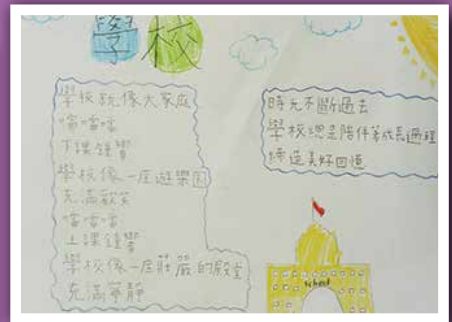 學校
學校就像大家庭
噹噹噹
下課鐘響
學校像一座遊樂園
充滿歡笑
噹噹噹
上課鐘響
學校像一座莊嚴的殿堂
充滿寧靜
時光不斷過去
學校總是陪伴著成長過程
締造美好回憶
School